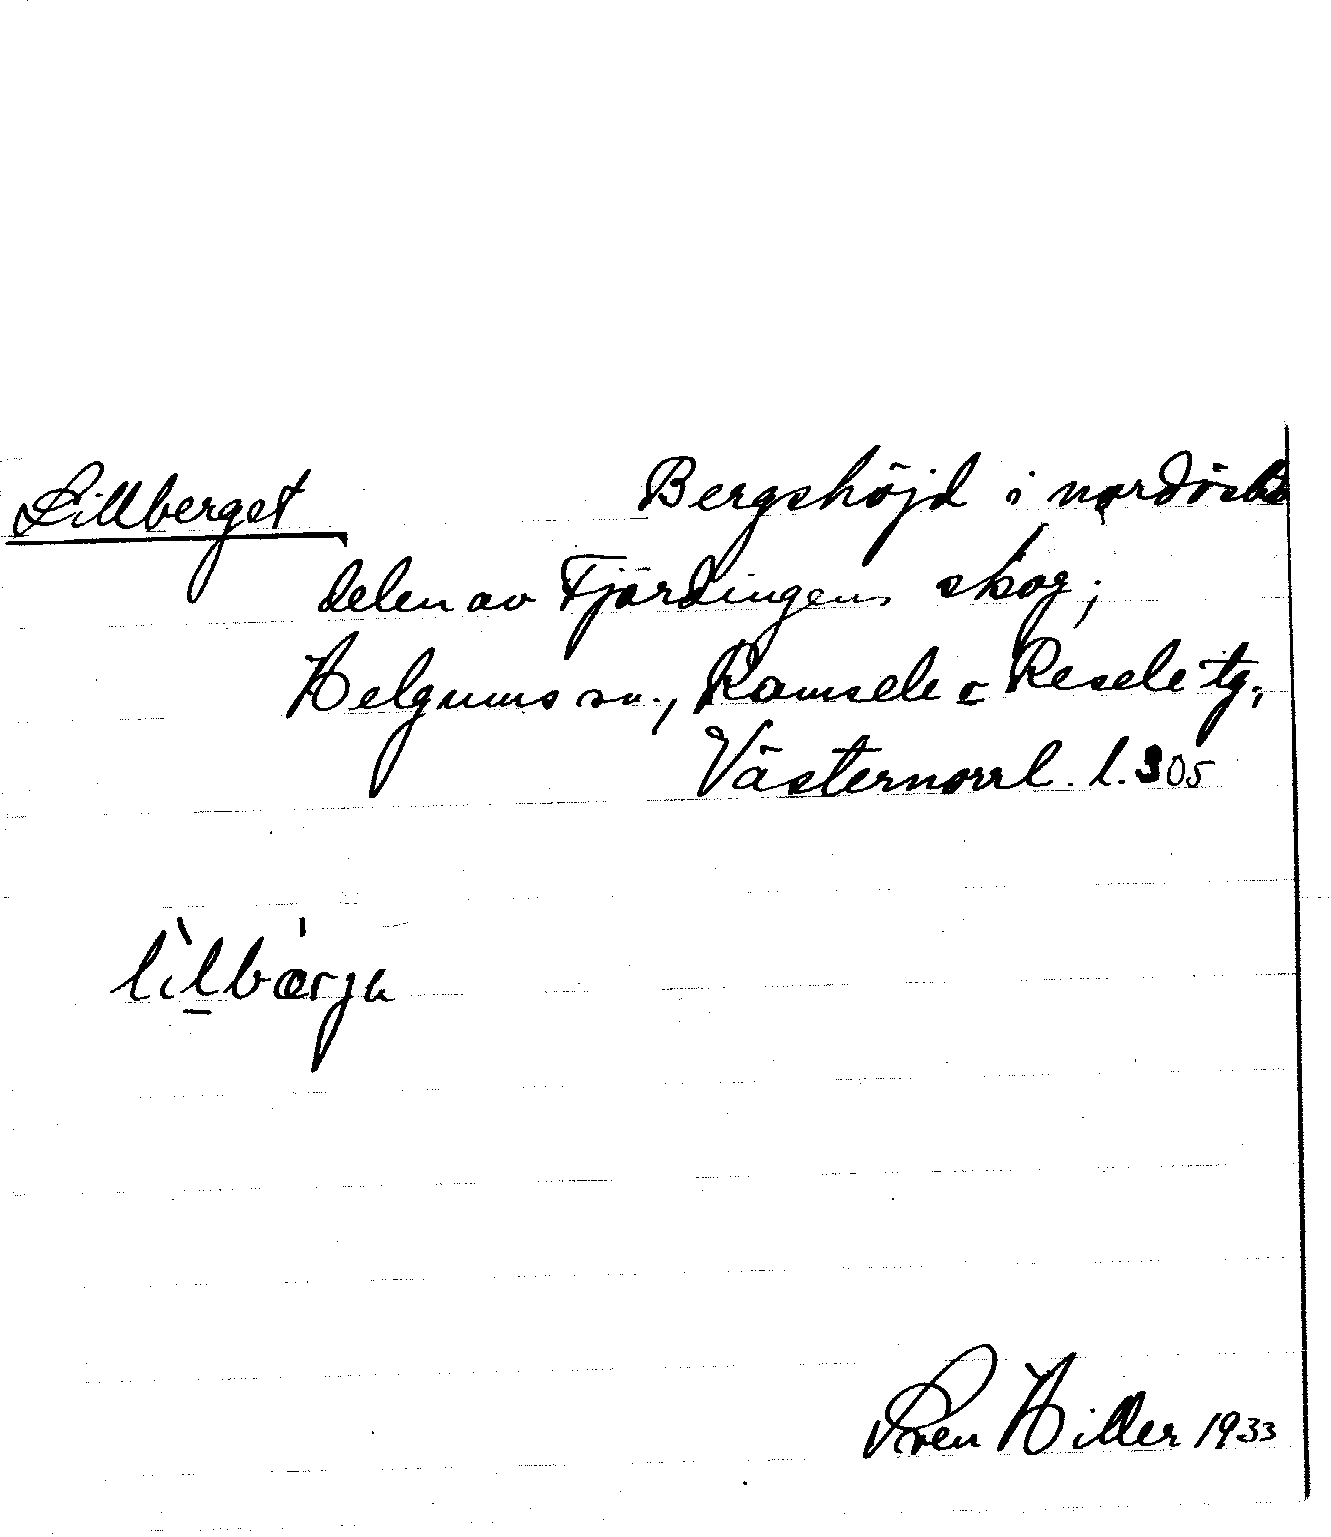 Lillberget Bergshöjd i nordöstra
delen av Fjärdingens skog;
Helgums sn., Ramsele o Resele tg,
Västernorrl. l. 305
lìlbárja
Sven Hiller 1933